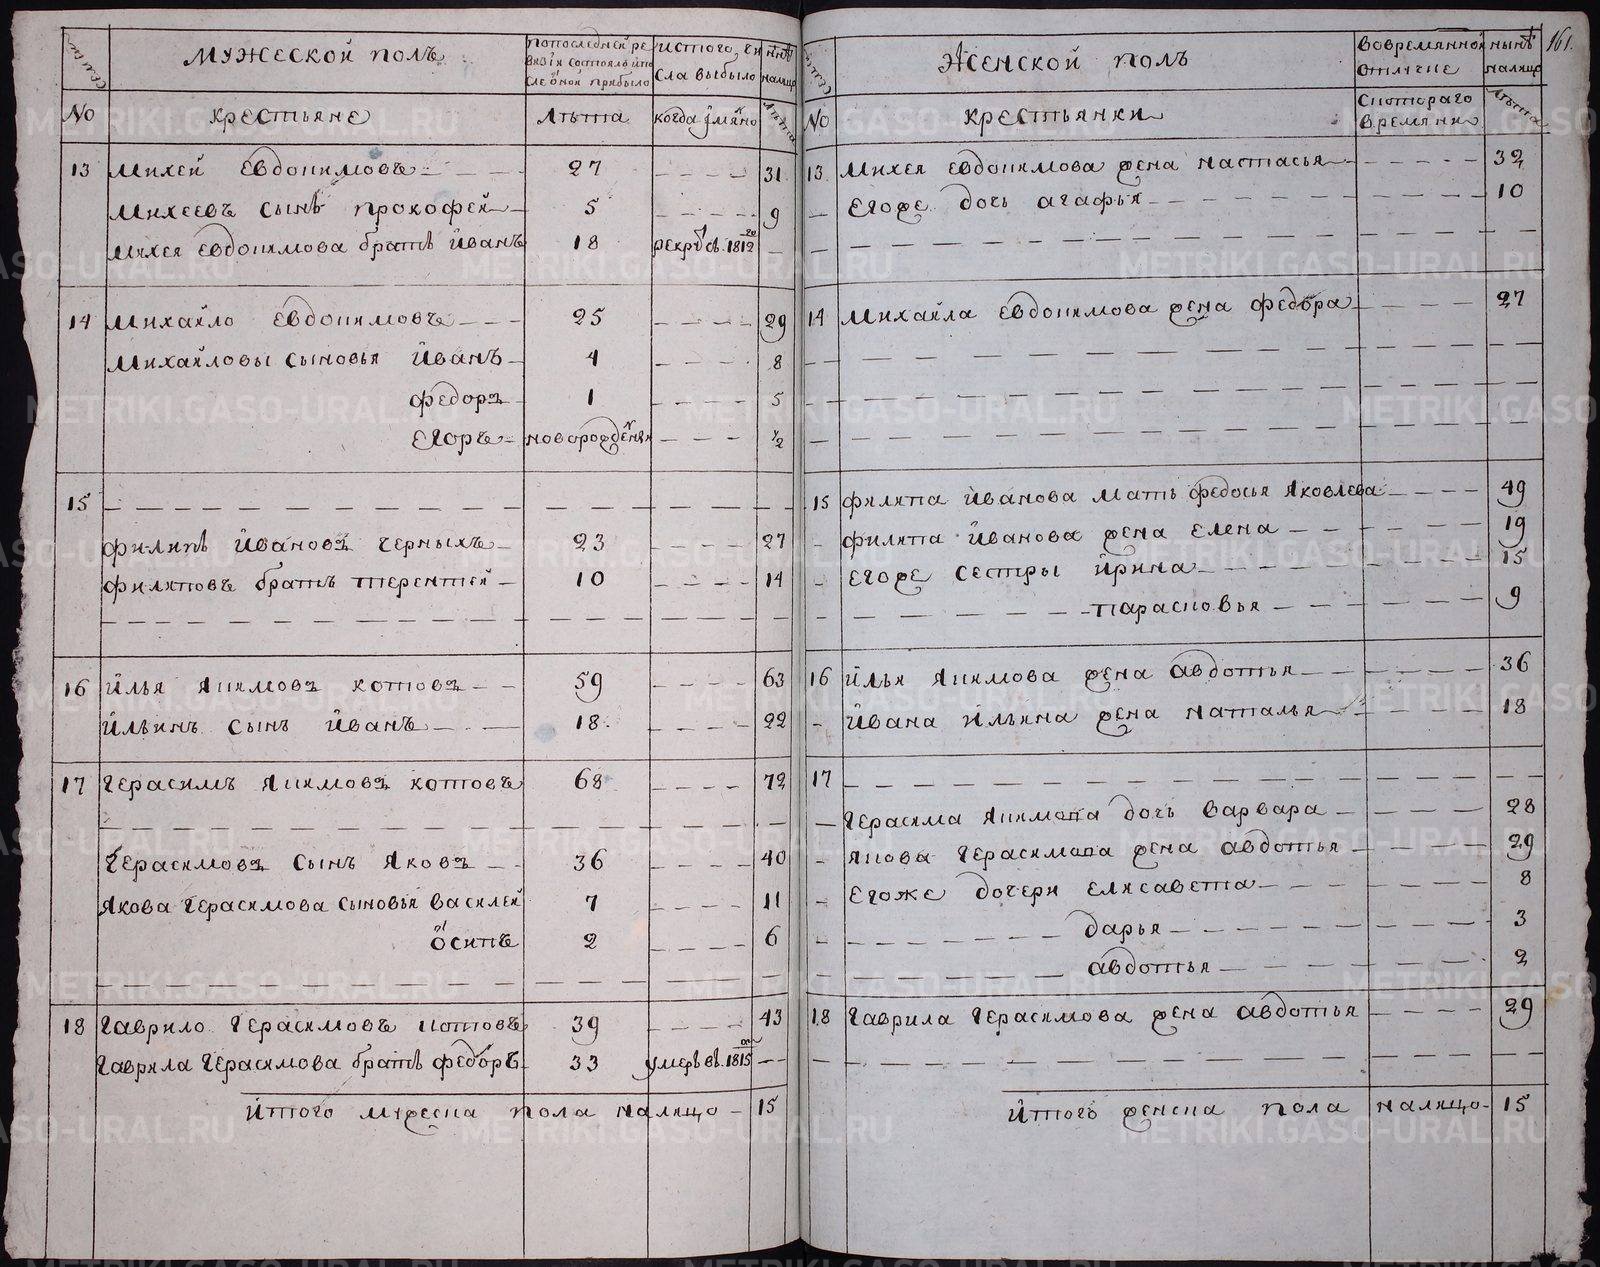 161.
семьи
мужеской полъ
попоследней ре
визiи состояло ипо
сле оной прибыло
истого чи
сла выбыло
ннѣ
налицо
№
крестьяне
лѣта
когда имянно
лѣта
13 михей евдокимовъ 27 31
михеевъ сынъ прокофей 5 9
михея евдокимова братъ иванъ 18 рекрутъ в. 1812
14 михайло евдокимовъ 25 29
михайловы сыновья иванъ 4 8
федоръ 1 5
егоръ новорожденъ ½
15
филипъ ивановъ черныхъ 23 27
филиповъ братъ терентей 10 14
16 илья якимовъ котовъ 59 63
ильинъ сынъ иванъ 18. 22
17 герасимъ якимовъ котовъ 68 72
герасимовъ сынъ яковъ 36 40
якова герасимова сыновья василей 7 11
осипъ 2 6
18 гаврило герасимовъ котовъ 39 43
гаврила герасимова братъ федоръ 33 умеръ в. 1815
итого мужеска пола налицо 15
семьи
женской полъ
вовремянной
отлучке
нынѣ
налицо
№
крестьянки
скотораго
времяни
лѣта
13 михея евдокимова жена настасья 32
егоже дочь агафья 10
14 михайла евдокимова жена федора 27
15 филипа иванова мать федосья яковлева 49
филипа иванова жена елена 19
егоже сестры ирина 15
парасковья 9
16 илья якимова жена авдотья 36
ивана ильина жена наталья 18
17
герасима якимова дочь варвара 28
якова герасимова жена авдотья 29
егоже дочери елисавета 8
дарья 3
авдотья 2
18 гаврила герасимова жена авдотья 29
итого женска пола налицо 15
METRIKI.GASO-URAL.RU